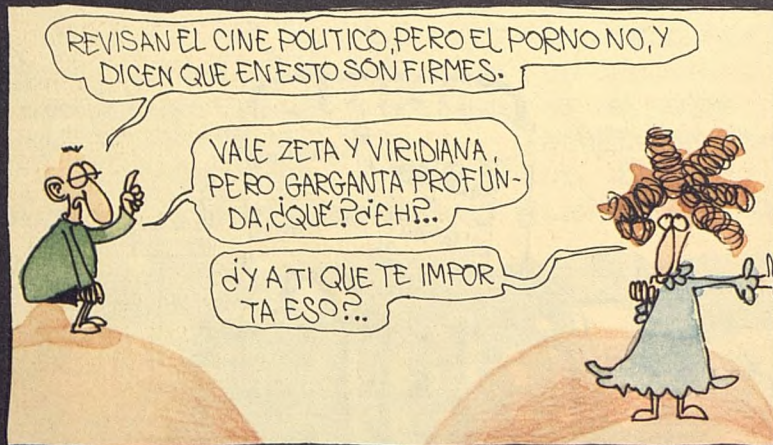 REVISAN EL CINE POLITICO, PERO EL PORNO NO, Y
DICEN QUE EN ESTO SON FIRMES.
VALE ZETA Y VIRIDIANA,
PERO GARGANTA PROFUN-
DA, ¿QUÉ? ¿EH?..
¿Y A TI QUE TE IMPOR
TA ESO?..